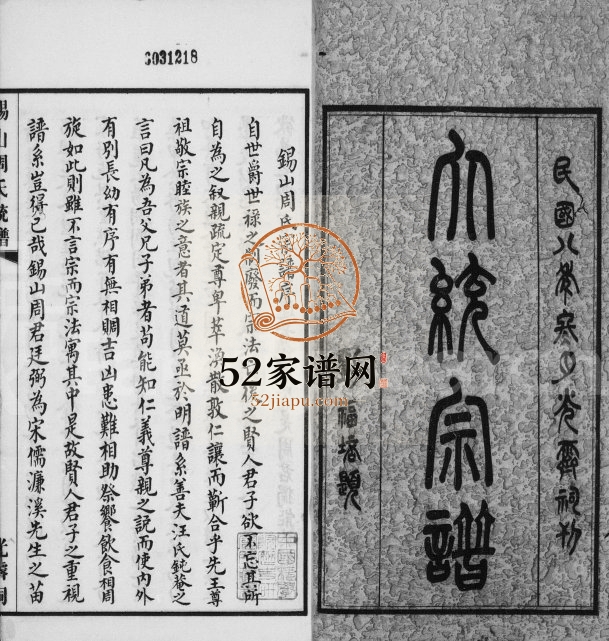 民國八年寒月光霽祠刊
大統宗譜
福培題
6031218
錫山周氏宗譜序
自世爵世祿之制發而宗法
後之賢人君子欲不忘其所
自為之叙親疏定尊卑萃渙散敦仁讓而蘄合乎先王尊
祖敬宗睦族之意者其道莫亟於明譜系善夫汪氏鈍菴之
言曰凡為吾父兄子弟者苟能知仁義尊親之說而使內外
有別長幼有序有無相賙吉凶患難相助祭饗飲食相周
旋如此則雖不言宗而宗法寓其中是故賢人君子之重視
譜系豈得已哉錫山周君廷弼為宋儒濂溪先生之苗
錫山周氏統譜
光霽祠
52家谱网
52jiapu.com